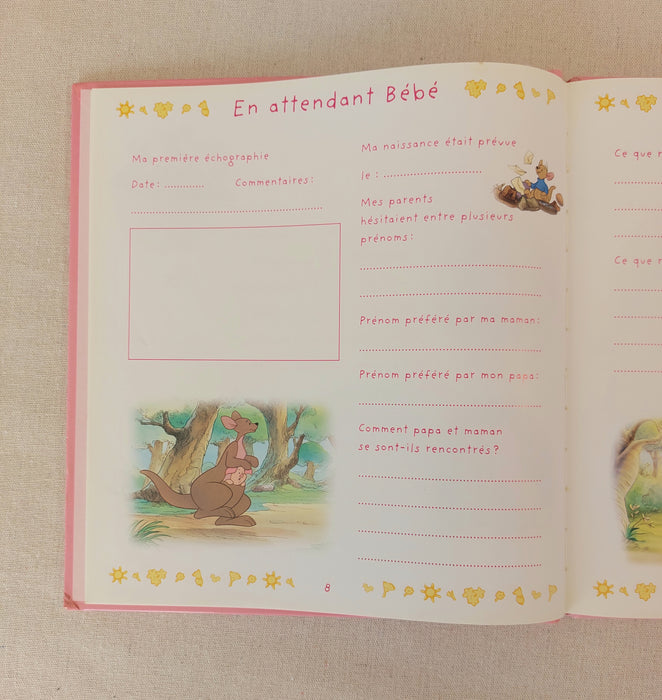 En attendant Bébé
Ma première échographie
Date: ............ Commentaires:
Ma naissance était prévue
le : .............................
Mes parents
hésitaient entre plusieurs
prénoms:
Prénom préféré par ma maman:
Prénom préféré par mon papa:
Comment papa et maman
se sont-ils rencontrés?
8
Ce que
Ce que